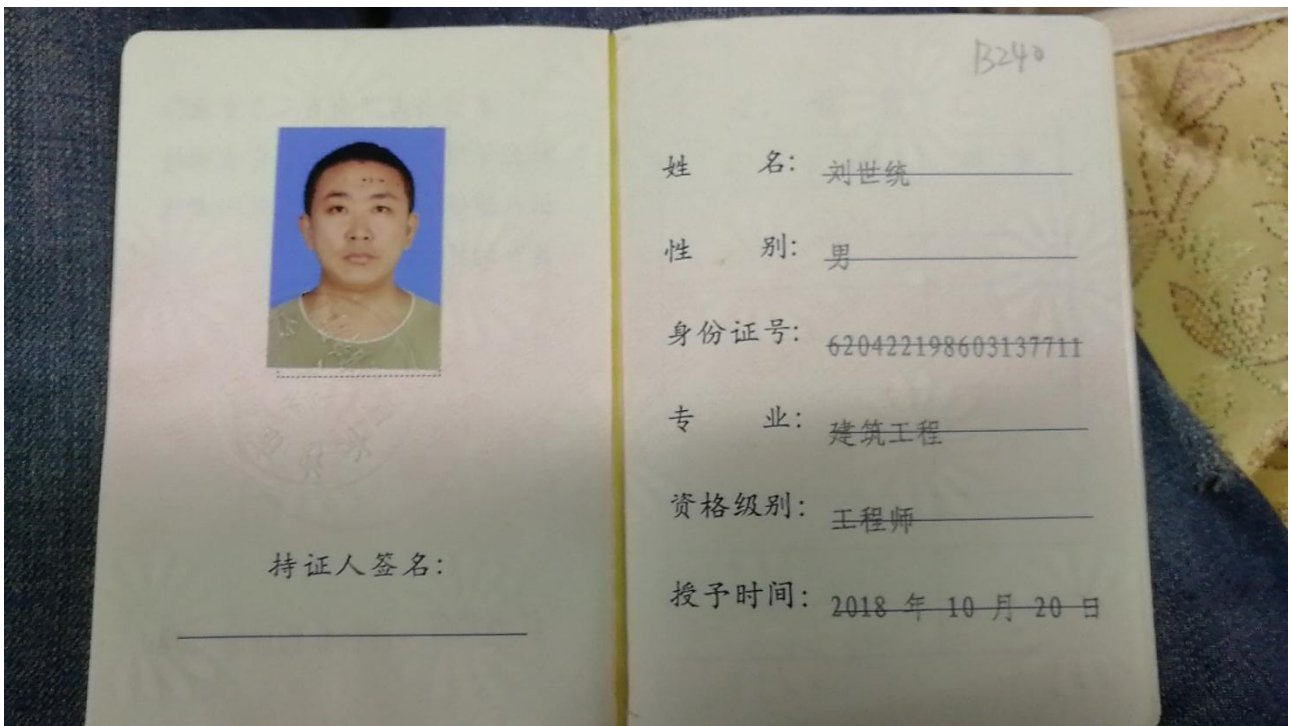 持证人签名:
B240
姓 名: 刘世统
性 别: 男
身份证号: 620422198603137711
专 业: 建筑工程
资格级别: 工程师
授予时间: 2018 年 10 月 20 日